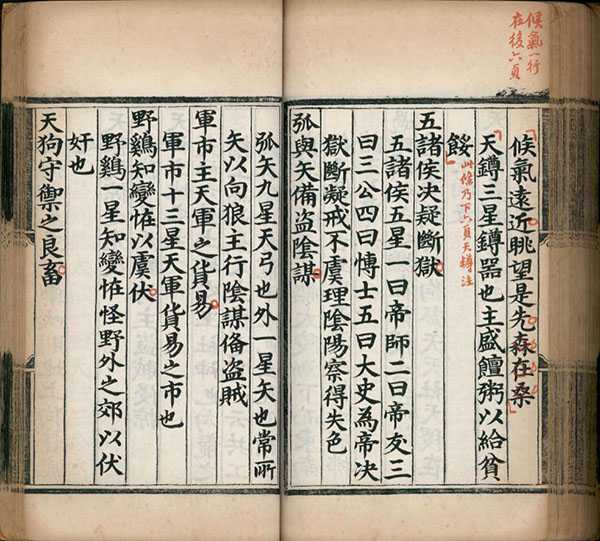 候氣一行
在後六頁
候氣遠近眺望是先森在桒
天鐏三星鐏器也主盛饘粥以給貧
餒
此條乃下六頁天鐏注
五諸侯决疑斷獄
五諸侯五星一曰帝師二曰帝友三
曰三公四曰愽士五曰大史為帝决
獄斷凝戒不虞理陰陽察得失色
弧與矢備盗陰謀
弧矢九星天弓也外一星矢也常所
矢以向狼主行陰謀俻盗賊
軍市主天軍之貨易
軍市十三星天軍貨易之市也
野鷄知變恠以虞伏
野鷄一星知變恠怪野外之郊以伏
奸也
天狗守禦之良畜